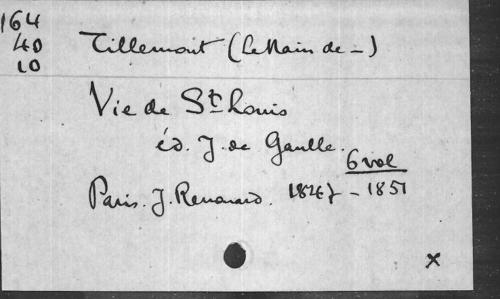 164
40
10
Tillemont (Le Nain de -)
Vie de St Louis
éd. J. de Gaulle.
6 vol
Paris. J. Renouard. 1847 - 1851
x